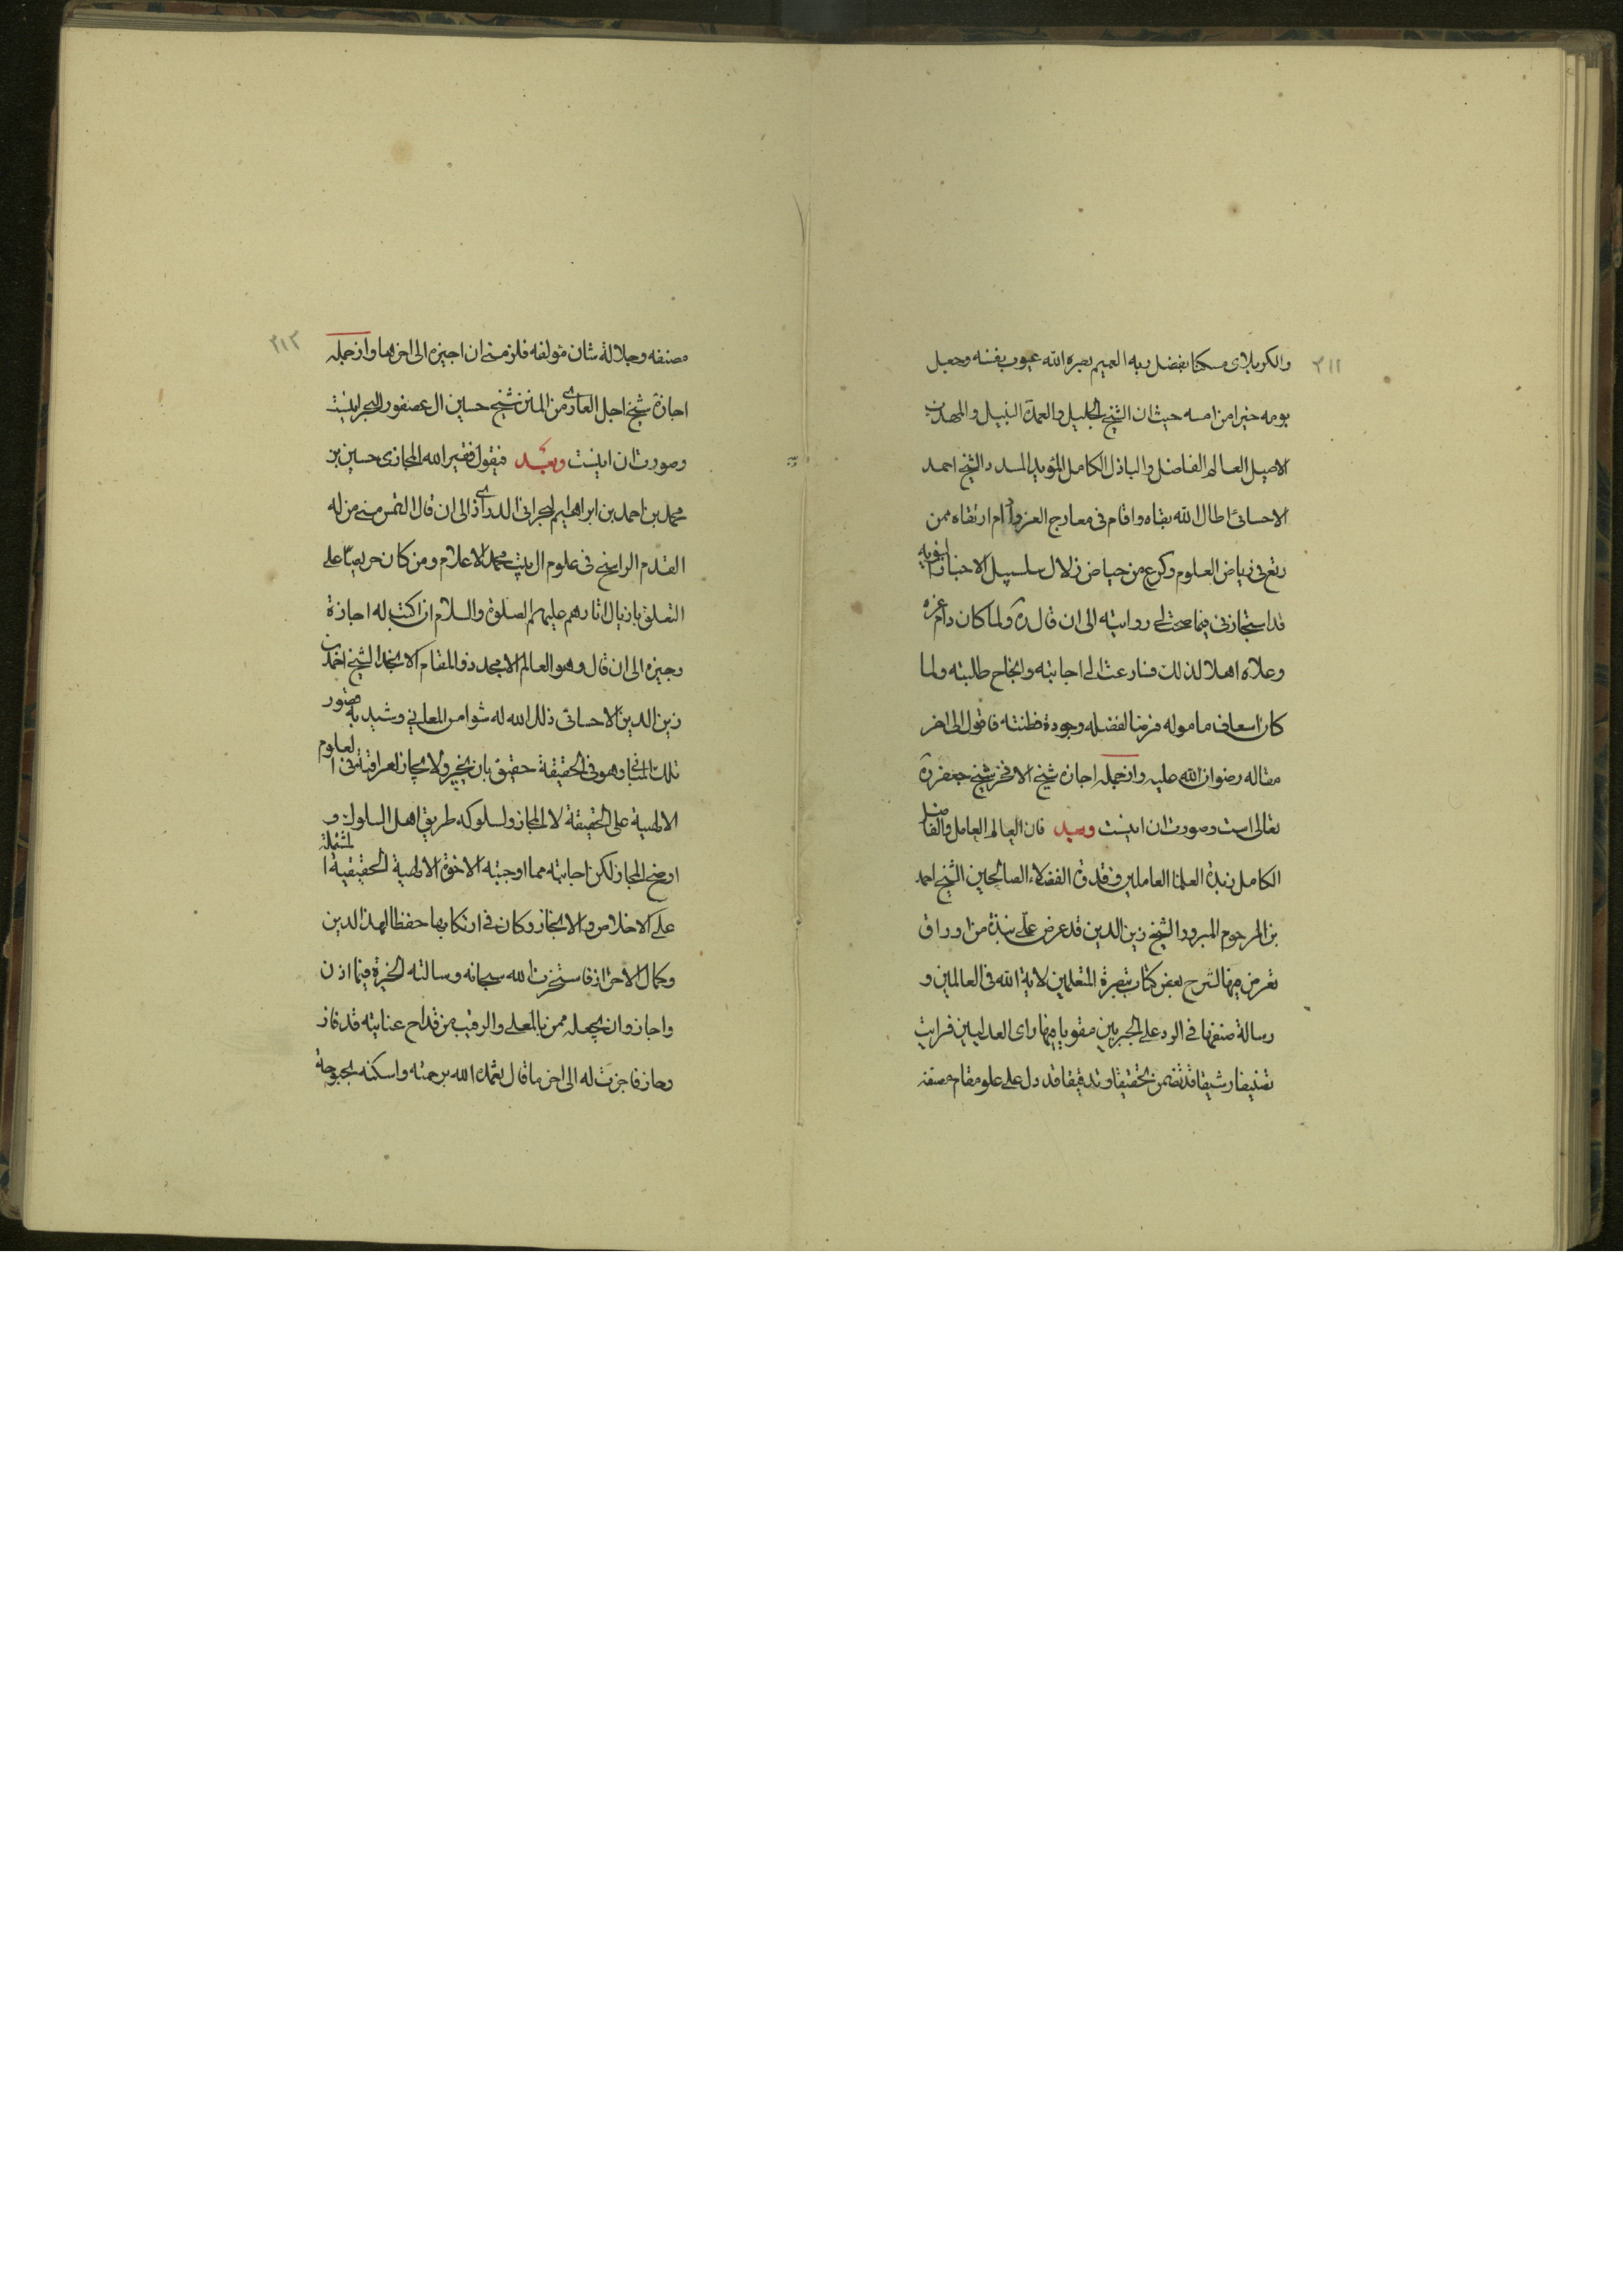 ٢١١
والكربلاى مسكنا بفضل ربه العميم بصره الله عيوب نفسه وجعل
يومه خيرا من امسه حيث ان الشيخ الجليل والعمدة النبيل والمهذب
الاصيل العالم الفاضل والباذل الكامل المؤيد المسدد الشيخ احمد
الاحسائى اطال الله بقاه واقام فى معارج العز وادام ارتقاه ممن
رتع فى رياض العلوم وكرع من حياض زلال سلسبيل الاخبار النبويه
قد استجازنى فيما صحت لى روايته الى ان قال ره ولما كان دام عزه
وعلاه اهلا لذلك فسارعت الى اجابته وانجاح طلبته ولما
كان اسعاف مأموله فرضا لفضله وجودة فطنته فاقول الى اخر
مقاله رضوان الله عليه واز جمله اجازه شيخ الافخر شيخ جعفر ره
تعالى است وصورت ان اينست وبعد فان العالم العامل والفاضل
الكامل زبدة العلماء العاملين وقدوة الفضلاء الصالحين الشيخ احمد
بن المرحوم المبرور الشيخ زين الدين قد عرض على نبذة من اوراق
تعرض فيها لشرح بعض كتاب تبصرة المتعلمين لاية الله فى العالمين و
رسالة صنفها فى الرد على الجبريين مقويا فيها راى العدليين فرايت
تصنيفا رشيقا قد تضمن تحقيقا وتدقيقا قد دل على علو مقام مصنفه
٢١٢
مصنفه وجلالة شان مؤلفه فلزمنى ان اجيزه الى اخرها واز جمله
اجازه شيخ اجل العارى من المين شيخ حسين ال عصفور البحرانيست
وصورت ان اينست وبعد فيقول فقير الله المجازى حسين بن
محمد بن احمد بن ابراهيم البحرانى الدرازى الى ان قال التمس منى من له
القدم الراسخ فى علوم ال بيت محمد الاعلام ومن كان حريصا على
التعلق باذيال اثارهم عليهم الصلوة والسلام ان اكتب له اجازة
وجيزه الى ان قال وهو العالم الامجد ذو المقام الانجد الشيخ احمد بن
زين الدين الاحسائى ذلل الله له شوامس المعانى وشيد به قصور
تلك المبانى وهو فى الحقيقة حقيق بان يجيز ولا يجاز لعراقته فى العلوم
الالهية على الحقيقة لا المجاز ولسلوكه طريق اهل السلوك و
اوضح المجاز لكن اجابته مما اوجبته الاخوة الالهية الحقيقية المشتملة
على الاخلاص والانجاز وكان فى ارتكابها حفظا لهذا الدين
وكمال الاحراز فاستخرت الله سبحانه وسالته الخيرة فيما اذن
واجاز وان يجعله ممن بالمعلى والرقيب من قداح عنايته قد فاز
وحاز فاجزت له الى اخر ما قال تغمده الله برحمته واسكنه بحبوحة